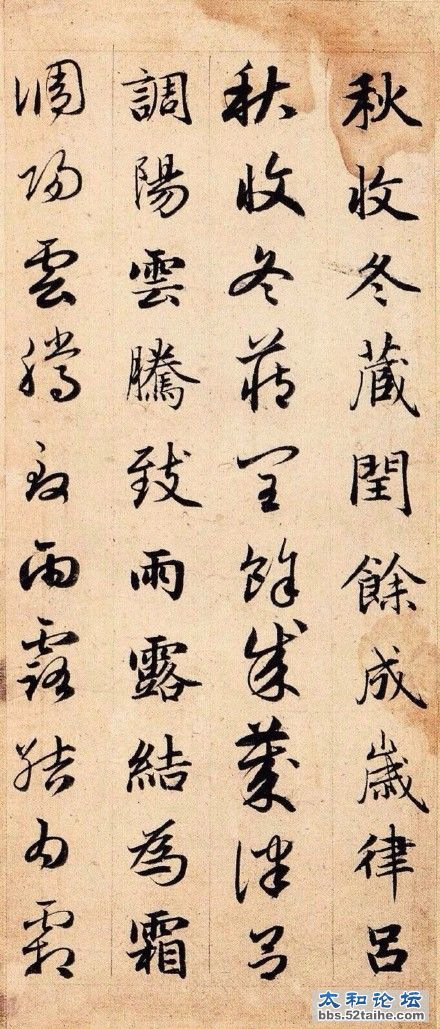 秋收冬蔵閏餘成歲律呂
秋收冬蔵閏餘成歲律呂
調陽雲騰致雨露結為霜
調陽雲騰致雨露結為霜
太和论坛
bbs.52taihe.com